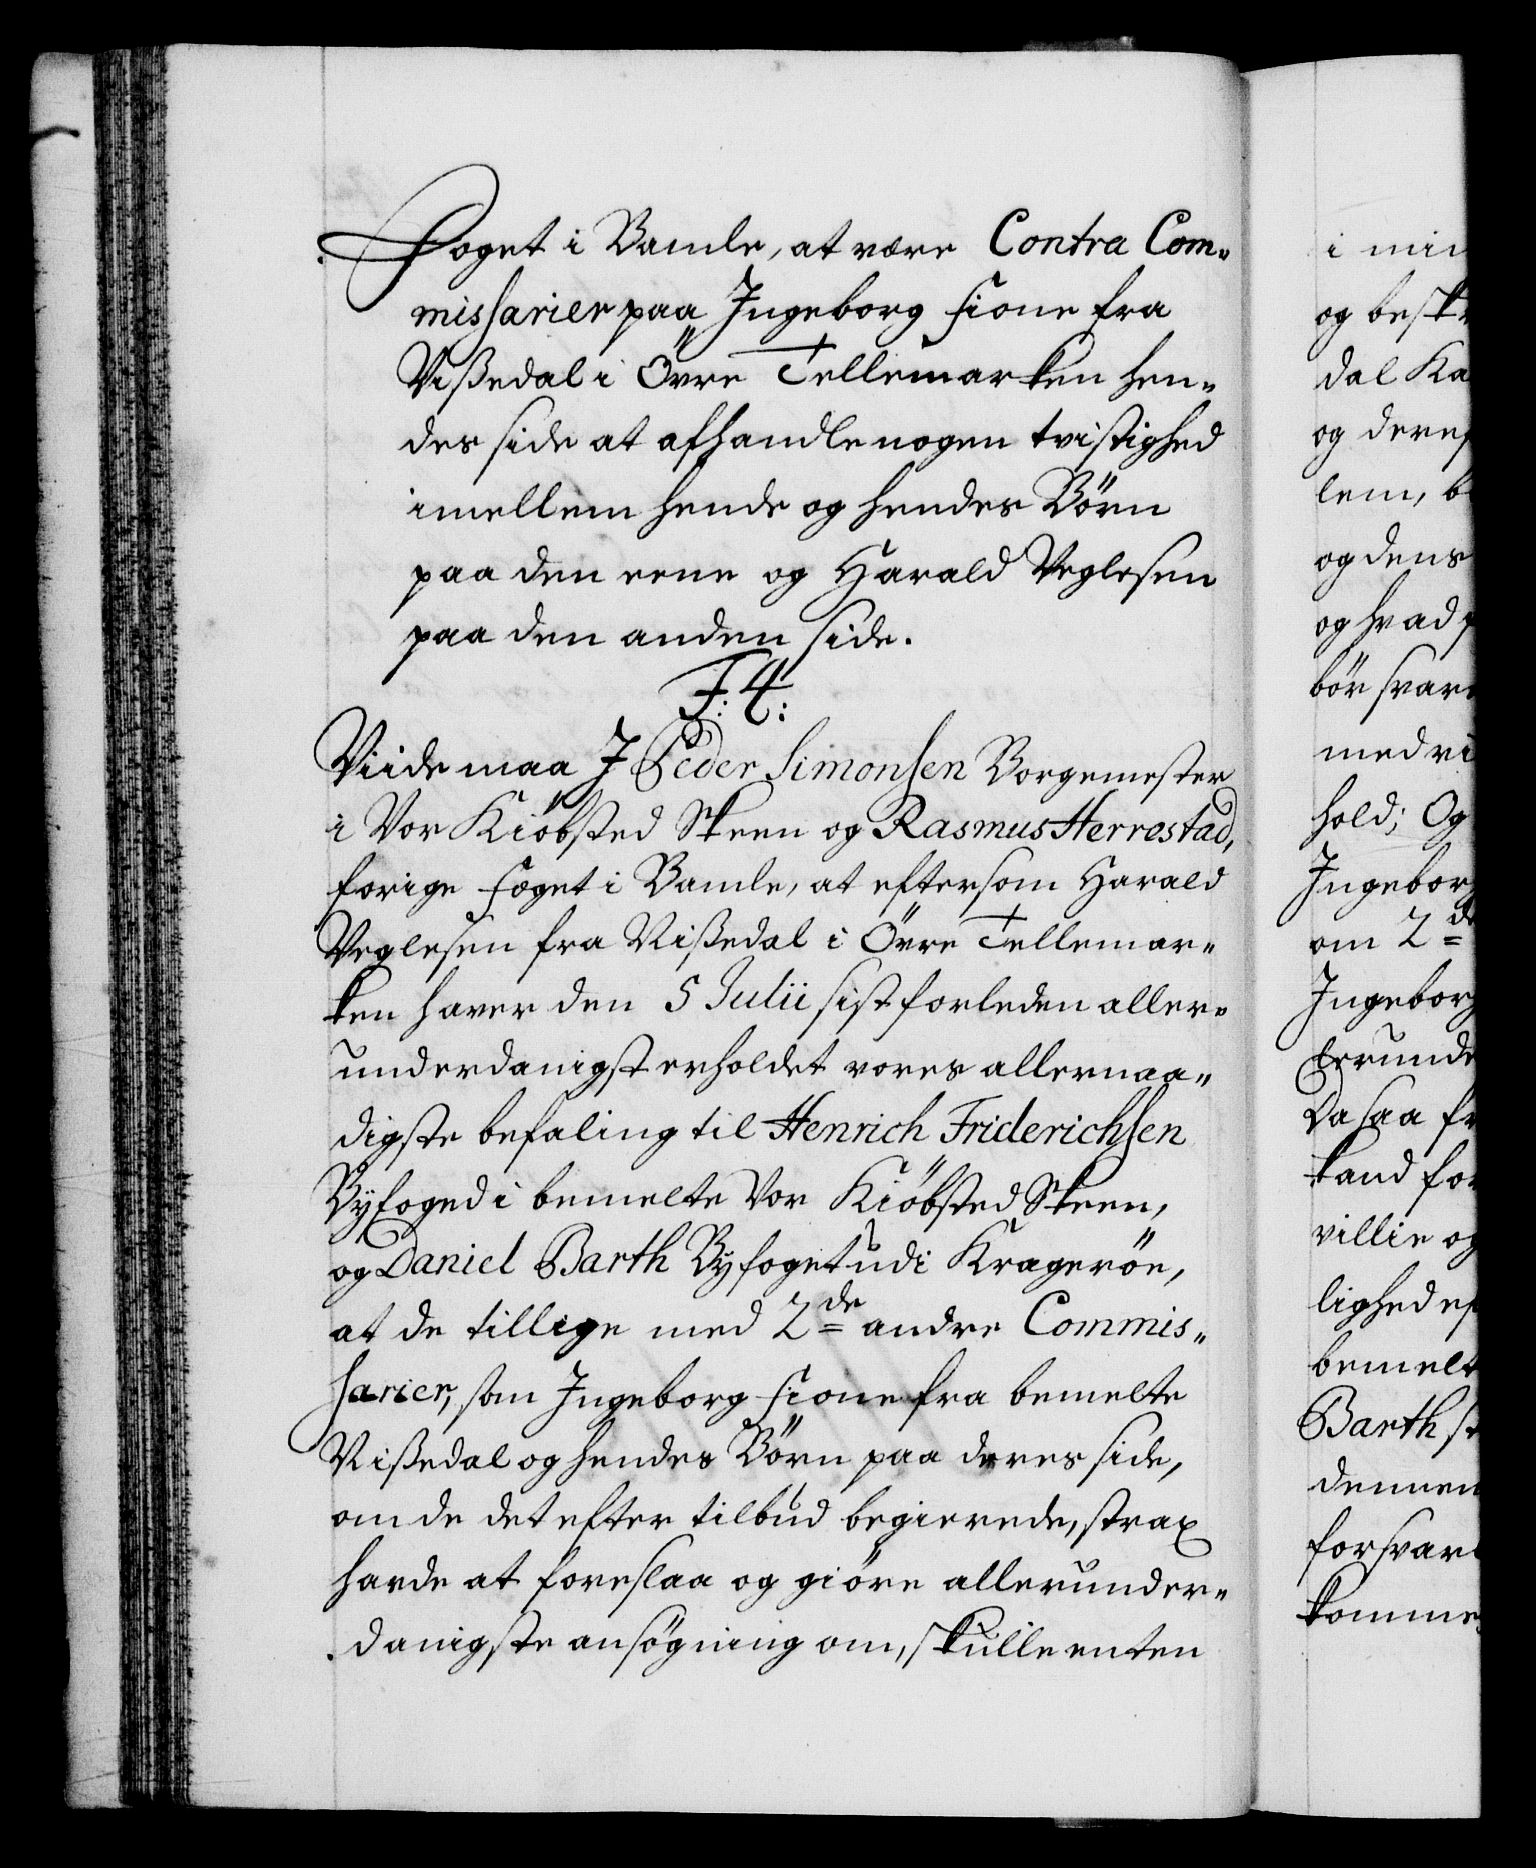 Foget i Bamle, at være Contra Com-
missarier paa Ingeborg Fione fra
Nißedal i Övre Tellemarken hen-
des side at afhandle nogen tvistighed
imellem hende og hendes Börn
paa den eene og Harald Veglesen
paa den anden side.
F: 4:
Viide maa J Peder Simonsen Borgemester
i Vor Kiöbsted Skeen og Rasmus Herrestad,
forige Foget i Bamle, at eftersom Harald
Veglesen fra Nißedal i Övre Tellemar-
ken haver den 5 Julii sist forleden aller-
underdanigst erholdet vores allernaa-
digste befaling til Henrich Friderichsen
Byfoged i bemelte Vor Kiöbsted Skeen,
og Daniel Barth Byfoget udi Krageröe,
at de tillige med 2de andre Commis-
sarier, som Ingeborg Fione fra bemelte
Nißedal og hendes Börn paa deres side,
om de det efter tilbud begierede, strax
havde at foreslaa og giöre allerunder-
danigste ansögning om, skulle enten
i min
og besk
dal Ka
og deref
lem, b
og dens
og hvad
bör svar
med vi
hold; Og
Ingeborg
om 2de
Ingeborg
Da saa fr
kand for
villie og
lighed ef
bemelt
Barth
dennem
forsvar
komme